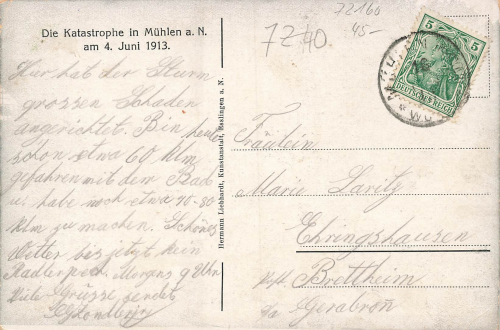 Die Katastrophe in Mühlen a. N.
am 4. Juni 1913.
Hier hat der Sturm
grossen Schaden
angerichtet. Bin heute
schon etwa 60 klm
gefahren mit dem Rad
u. habe noch etwa 70-80
klm zu machen. Schönes
Wetter bis jetzt kein
Radlerpech. Morgens 9 Uhr
Viele Grüsse sendet
Hermann Liebhardt, Kunstanstalt, Esslingen a. N.
7240
72160
45-
5 5
DEUTSCHES REICH
Fräulein
Marie Laritz
Ehringshausen
Post Brettheim
O/A Gerabronn